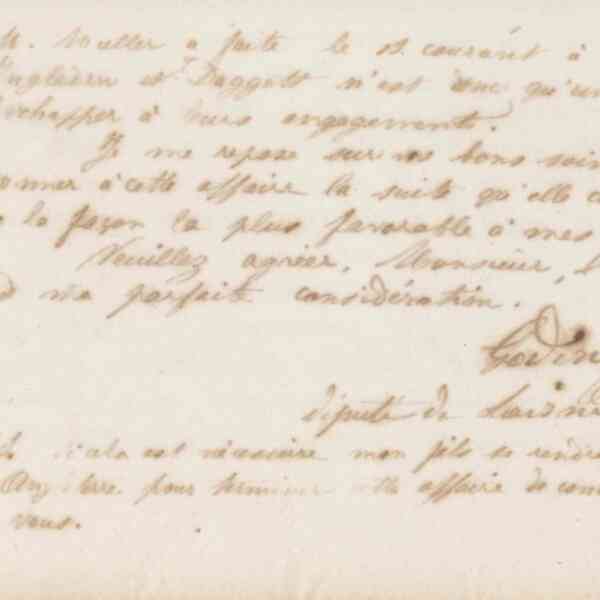 M. Muller a faite le courant à
et Daggett n'est qu'un
échapper à leurs engagements.
Je me repose sur vos bons soin
donner à cette affaire la suite qu'elle
la façon la plus favorable à mes
Veuillez agréer, Monsieur,
ma parfaite considération.
Godin
député de
cela est nécessaire mon fils se rendra
pour terminer cette affaire de
vous.